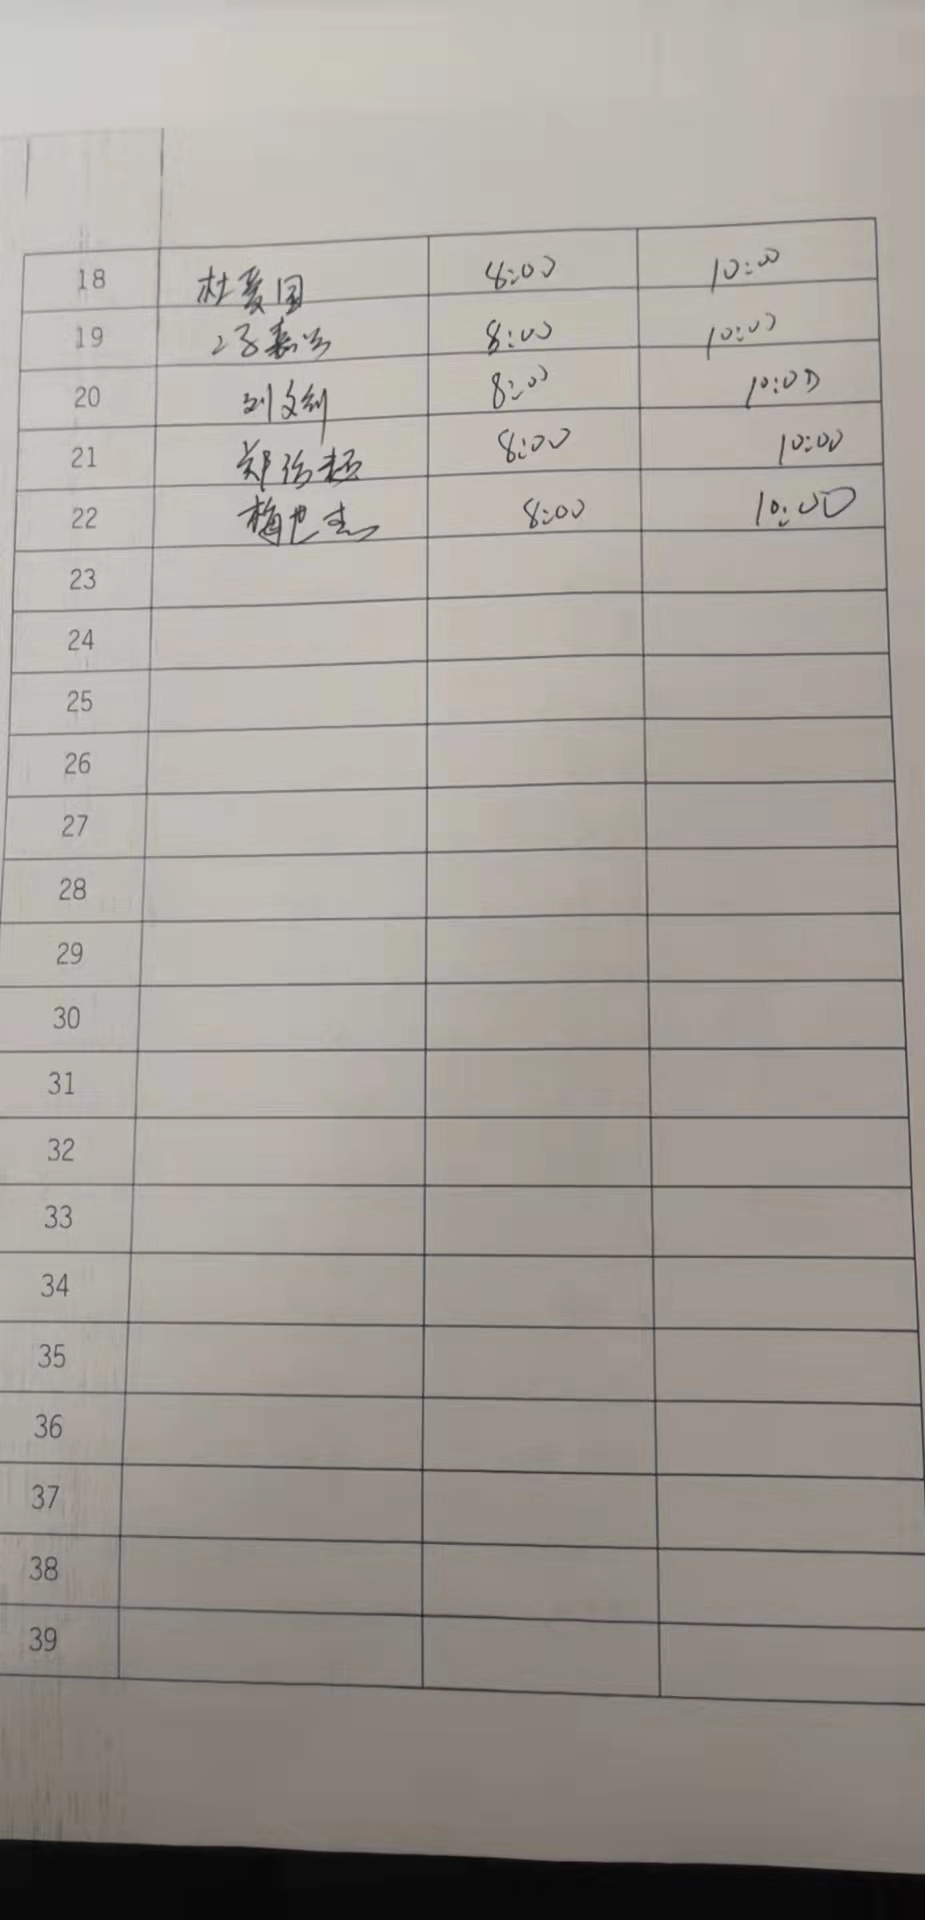 18 杜爱国 8:00 10:00
19 8:00 10:00
20 刘文剑 8:00 10:00
21 郑 8:00 10:00
22 梅也杰 8:00 10:00
23
24
25
26
27
28
29
30
31
32
33
34
35
36
37
38
39